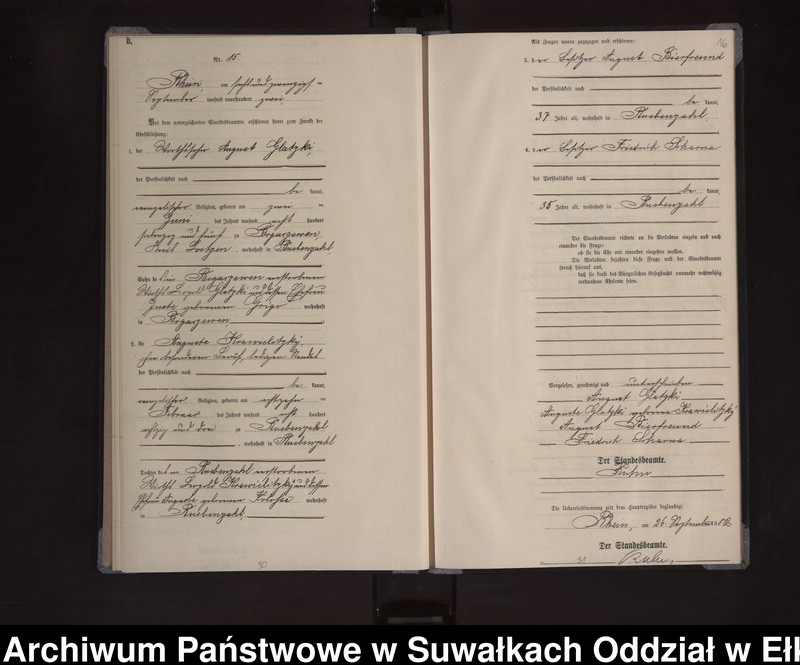 B.
Nr. 15.
Rhein, am sechsundzwanzigsten
September tausend neunhundert zwei
Vor dem unterzeichneten Standesbeamten erschienen heute zum Zwecke der
Eheschließung:
1. der Wirthssohn August Glatzki,
der Persönlichkeit nach
be kannt,
evangelischer Religion, geboren am zwei
Juni des Jahres tausend acht hundert
siebenzig und fünf in Bogaczewen,
Kreis Loetzen, wohnhaft in Ruebenzahl,
Sohn des in Bogaczewen verstorbenen
Wirths Leopold Glatzki und dessen Ehefrau
geborenen wohnhaft
in Bogaczewen
2. die Auguste Krawielitzki,
ohne besonderen Beruf, ledigen Standes
der Persönlichkeit nach
be kannt,
evangelischer Religion, geboren am achtzehn
Februar des Jahres tausend acht hundert
achtzig und drei in Ruebenzahl
, wohnhaft in Ruebenzahl
Tochter des in Ruebenzahl verstorbenen
Wirths Leopold Krawielitzki und dessen
Ehefrau Auguste geborenen wohnhaft
in Ruebenzahl
30
16
Als Zeugen waren zugezogen und erschienen:
3. der Besitzer August Bierfreund
der Persönlichkeit nach
be kannt,
37 Jahre alt, wohnhaft in Ruebenzahl,
4. der Besitzer Friedrich Skarna
der Persönlichkeit nach
be kannt,
35 Jahre alt, wohnhaft in Ruebenzahl
Der Standesbeamte richtete an die Verlobten einzeln und nach
einander die Frage:
ob sie die Ehe mit einander eingehen wollen.
Die Verlobten bejahten diese Frage und der Standesbeamte
sprach hierauf aus,
daß sie kraft des Bürgerlichen Gesetzbuchs nunmehr rechtmäßig
verbundene Eheleute seien.
Vorgelesen, genehmigt und unterschrieben
August Glatzki
Auguste Glatzki geborene Krawielitzki
August Bierfreund
Friedrich Skarna
Der Standesbeamte.
Die Uebereinstimmung mit dem Hauptregister beglaubigt.
Rhein, am 26. September 1902
Der Standesbeamte.
31
Archiwum Państwowe w Suwałkach Oddział w Ełk